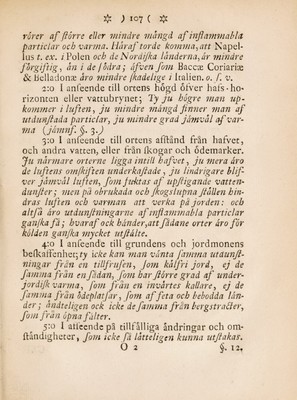 ✡ ) 107 ( ✡
rörer af ſtörre eller mindre mångd af inflammabla
particlar och varma. Häraf torde komma, att Napel-
lus t. ex. i Polen och de Nordiſka länderna, är mindre
förgiftig, än i de ſödra; äfven ſom Baccæ Coriariæ
& Belladonæ äro mindre ſkadelige i Italien. o. ſ. v.
2:0 I anſeende till ortens högd öfver hafs-ho-
rizonten eller vattubrynet; Ty ju högre man up-
kommer i luften, ju mindre mångd finner man af
utdunſtada particlar, ju mindre grad jämvål af var-
ma (jämnf. §. 3.)
3:0 I anſeende till ortens afſtånd från hafvet,
och andra vatten, eller från ſkogar och ödemarker.
Ju närmare orterne ligga intill hafvet, ju mera äro
de luftens omſkiften underkaſtade, ju lindrigare blif-
ver jämvål luften, ſom fuktas af upſtigande vatten-
dunſter; men på obrukade och ſkogslupna ſtällen hin-
dras luften och varman att verka på jorden: och
altſå äro utdunſtningarne af inflammabla particlar
ganſka få; hvaraf ock händer, att ſådane orter äro för
kölden ganſka mycket utſtälte.
4:0 I anſeende till grundens och jordmonens
beſkaffenhet; ty icke kan man vänta ſamma utdunſt-
ningar från en tillfruſen, ſom kålfri jord, ej de
ſamma från en ſådan, ſom har ſtörre grad af under-
jordiſk varma, ſom från en invärtes kallare, ej de
ſamma från bådeplatſar, ſom af feta och bebodda län-
der; ändteligen ock icke de ſamma från bergstracter,
ſom från öpna fälter.
5:0 I afſeende på tillfälliga ändringar och om-
ſtändigheter, ſom icke ſå lätteligen kunna utſtakas.
O 2 §. 12.